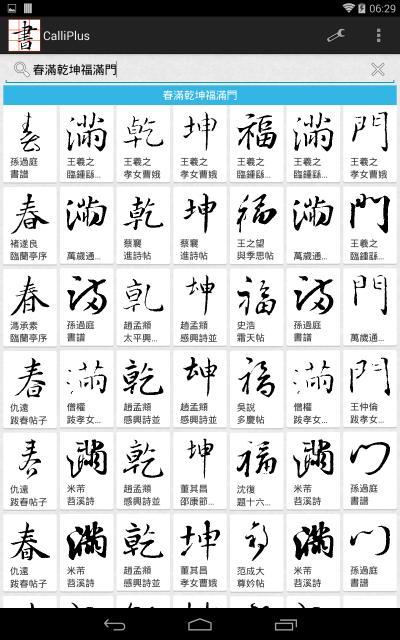 06:29
書 CalliPlus
春滿乾坤福滿門
春滿乾坤福滿門
春 滿 乾 坤 福 滿 門
孫過庭 王羲之 王羲之 王羲之 王羲之 王羲之 王羲之
書譜 臨鍾繇... 孝女曹娥 孝女曹娥 臨鍾繇... 臨鍾繇... 孝女曹娥
春 滿 乾 坤 福 滿 門
褚遂良 蔡襄 蔡襄 王之望 王羲之
臨蘭亭序 萬歲通... 進詩帖 進詩帖 與季思帖 萬歲通... 臨鍾繇...
春 滿 乾 坤 福 滿 門
馮承素 孫過庭 趙孟頫 趙孟頫 史浩 孫過庭
臨蘭亭序 書譜 太平興... 感興詩並 霜天帖 書譜 萬歲通...
春 滿 乾 坤 福 滿 門
仇遠 僧權 趙孟頫 趙孟頫 吳說 僧權 王仲倫
跋春帖子 跋孝女... 感興詩並 感興詩並 多慶帖 跋孝女... 跋孝女...
春 滿 乾 坤 福 滿 門
仇遠 米芾 趙孟頫 董其昌 沈復 米芾 孫過庭
跋春帖子 苕溪詩 感興詩並 邵康節... 題十六... 苕溪詩 書譜
春 滿 乾 坤 福 滿 門
仇遠 米芾 趙孟頫 董其昌 范成大 米芾 孫過庭
跋春帖子 苕溪詩 感興詩並 孝女曹娥 尊妙帖 苕溪詩 書譜